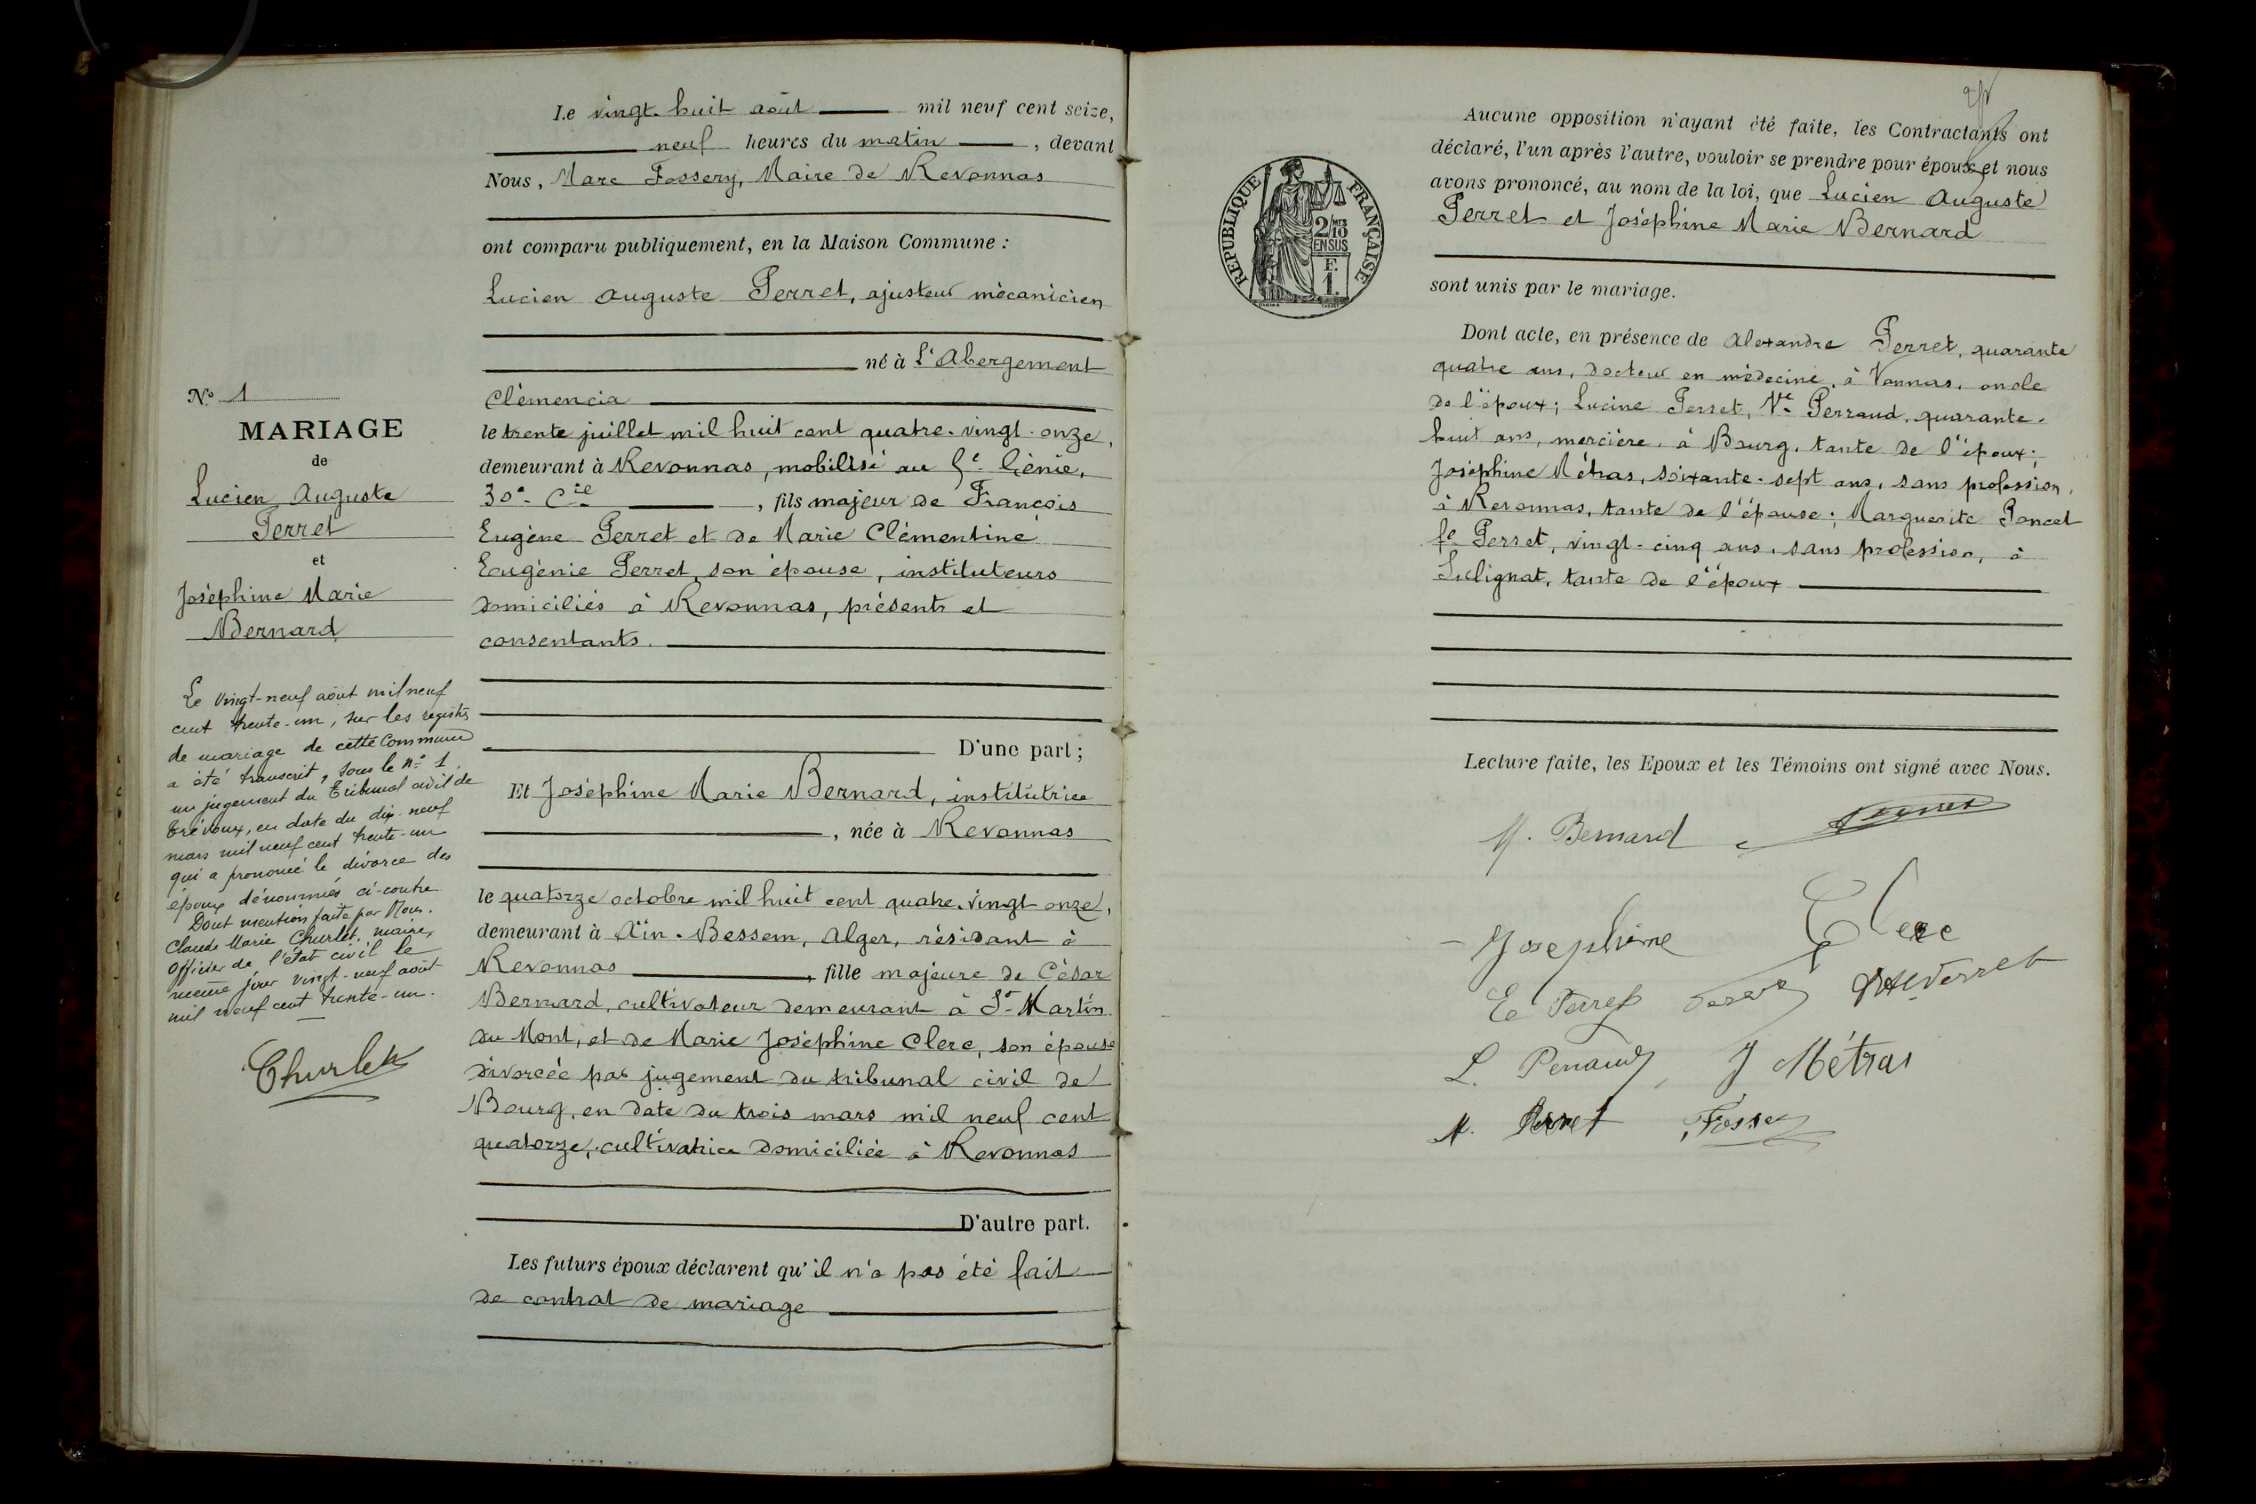 Le vingt-huit août mil neuf cent seize,
neuf heures du matin, devant
Nous, Marc Fossery, Maire de Revonnas
ont comparu publiquement, en la Maison Commune :
Lucien Auguste Perret, ajusteur mécanicien
né à L'Abergement
Clémencia
le trente juillet mil huit cent quatre-vingt-onze,
demeurant à Revonnas, mobilisé au 5e Génie,
30e Cie, fils majeur de François
Eugène Perret et de Marie Clémentine
Eugénie Perret, son épouse, instituteurs
domiciliés à Revonnas, présents et
consentants.
D'une part ;
Et Joséphine Marie Bernard, institutrice
, née à Revonnas
le quatorze octobre mil huit cent quatre-vingt-onze,
demeurant à Aïn-Bessem, Alger, résidant à
Revonnas, fille majeure de César
Bernard, cultivateur demeurant à St Martin
du Mont, et de Marie Joséphine Clerc, son épouse
divorcée par jugement du tribunal civil de
Bourg, en date du trois mars mil neuf cent
quatorze, cultivatrice domiciliée à Revonnas
D'autre part.
Les futurs époux déclarent qu'il n'a pas été fait
de contrat de mariage
No 1
MARIAGE
de
Lucien Auguste
Perret
et
Joséphine Marie
Bernard
Le vingt-neuf août mil neuf
cent trente-un, sur les registres
de mariage de cette Commune
a été transcrit, sous le no 1
un jugement du Tribunal civil de
Trévoux, en date du dix-neuf
mars mil neuf cent trente-un
qui a prononcé le divorce des
époux dénommés ci-contre
Dont mention faite par Nous.
Claude Marie Churlet, maire,
officier de l'état civil le
même jour vingt-neuf août
mil neuf cent trente-un.
Churlet
RÉPUBLIQUE FRANÇAISE
2/10
EN SUS
F.
1.
Aucune opposition n'ayant été faite, les Contractants ont
déclaré, l'un après l'autre, vouloir se prendre pour époux et nous
avons prononcé, au nom de la loi, que Lucien Auguste
Perret et Joséphine Marie Bernard
sont unis par le mariage.
Dont acte, en présence de Alexandre Perret, quarante
quatre ans, docteur en médecine, à Vonnas, oncle
de l'époux ; Lucine Perret, Ve Perraud, quarante-
huit ans, mercière, à Bourg, tante de l'époux ;
Joséphine Métras, soixante-sept ans, sans profession,
à Revonnas, tante de l'épouse ; Marguerite Poncet
fe Perret, vingt-cinq ans, sans profession, à
Sulignat, tante de l'époux
Lecture faite, les Epoux et les Témoins ont signé avec Nous.
M. Bernard
Josephine Clerc
E Perret
L. Perraud, J Métras
M. Perret Fossery